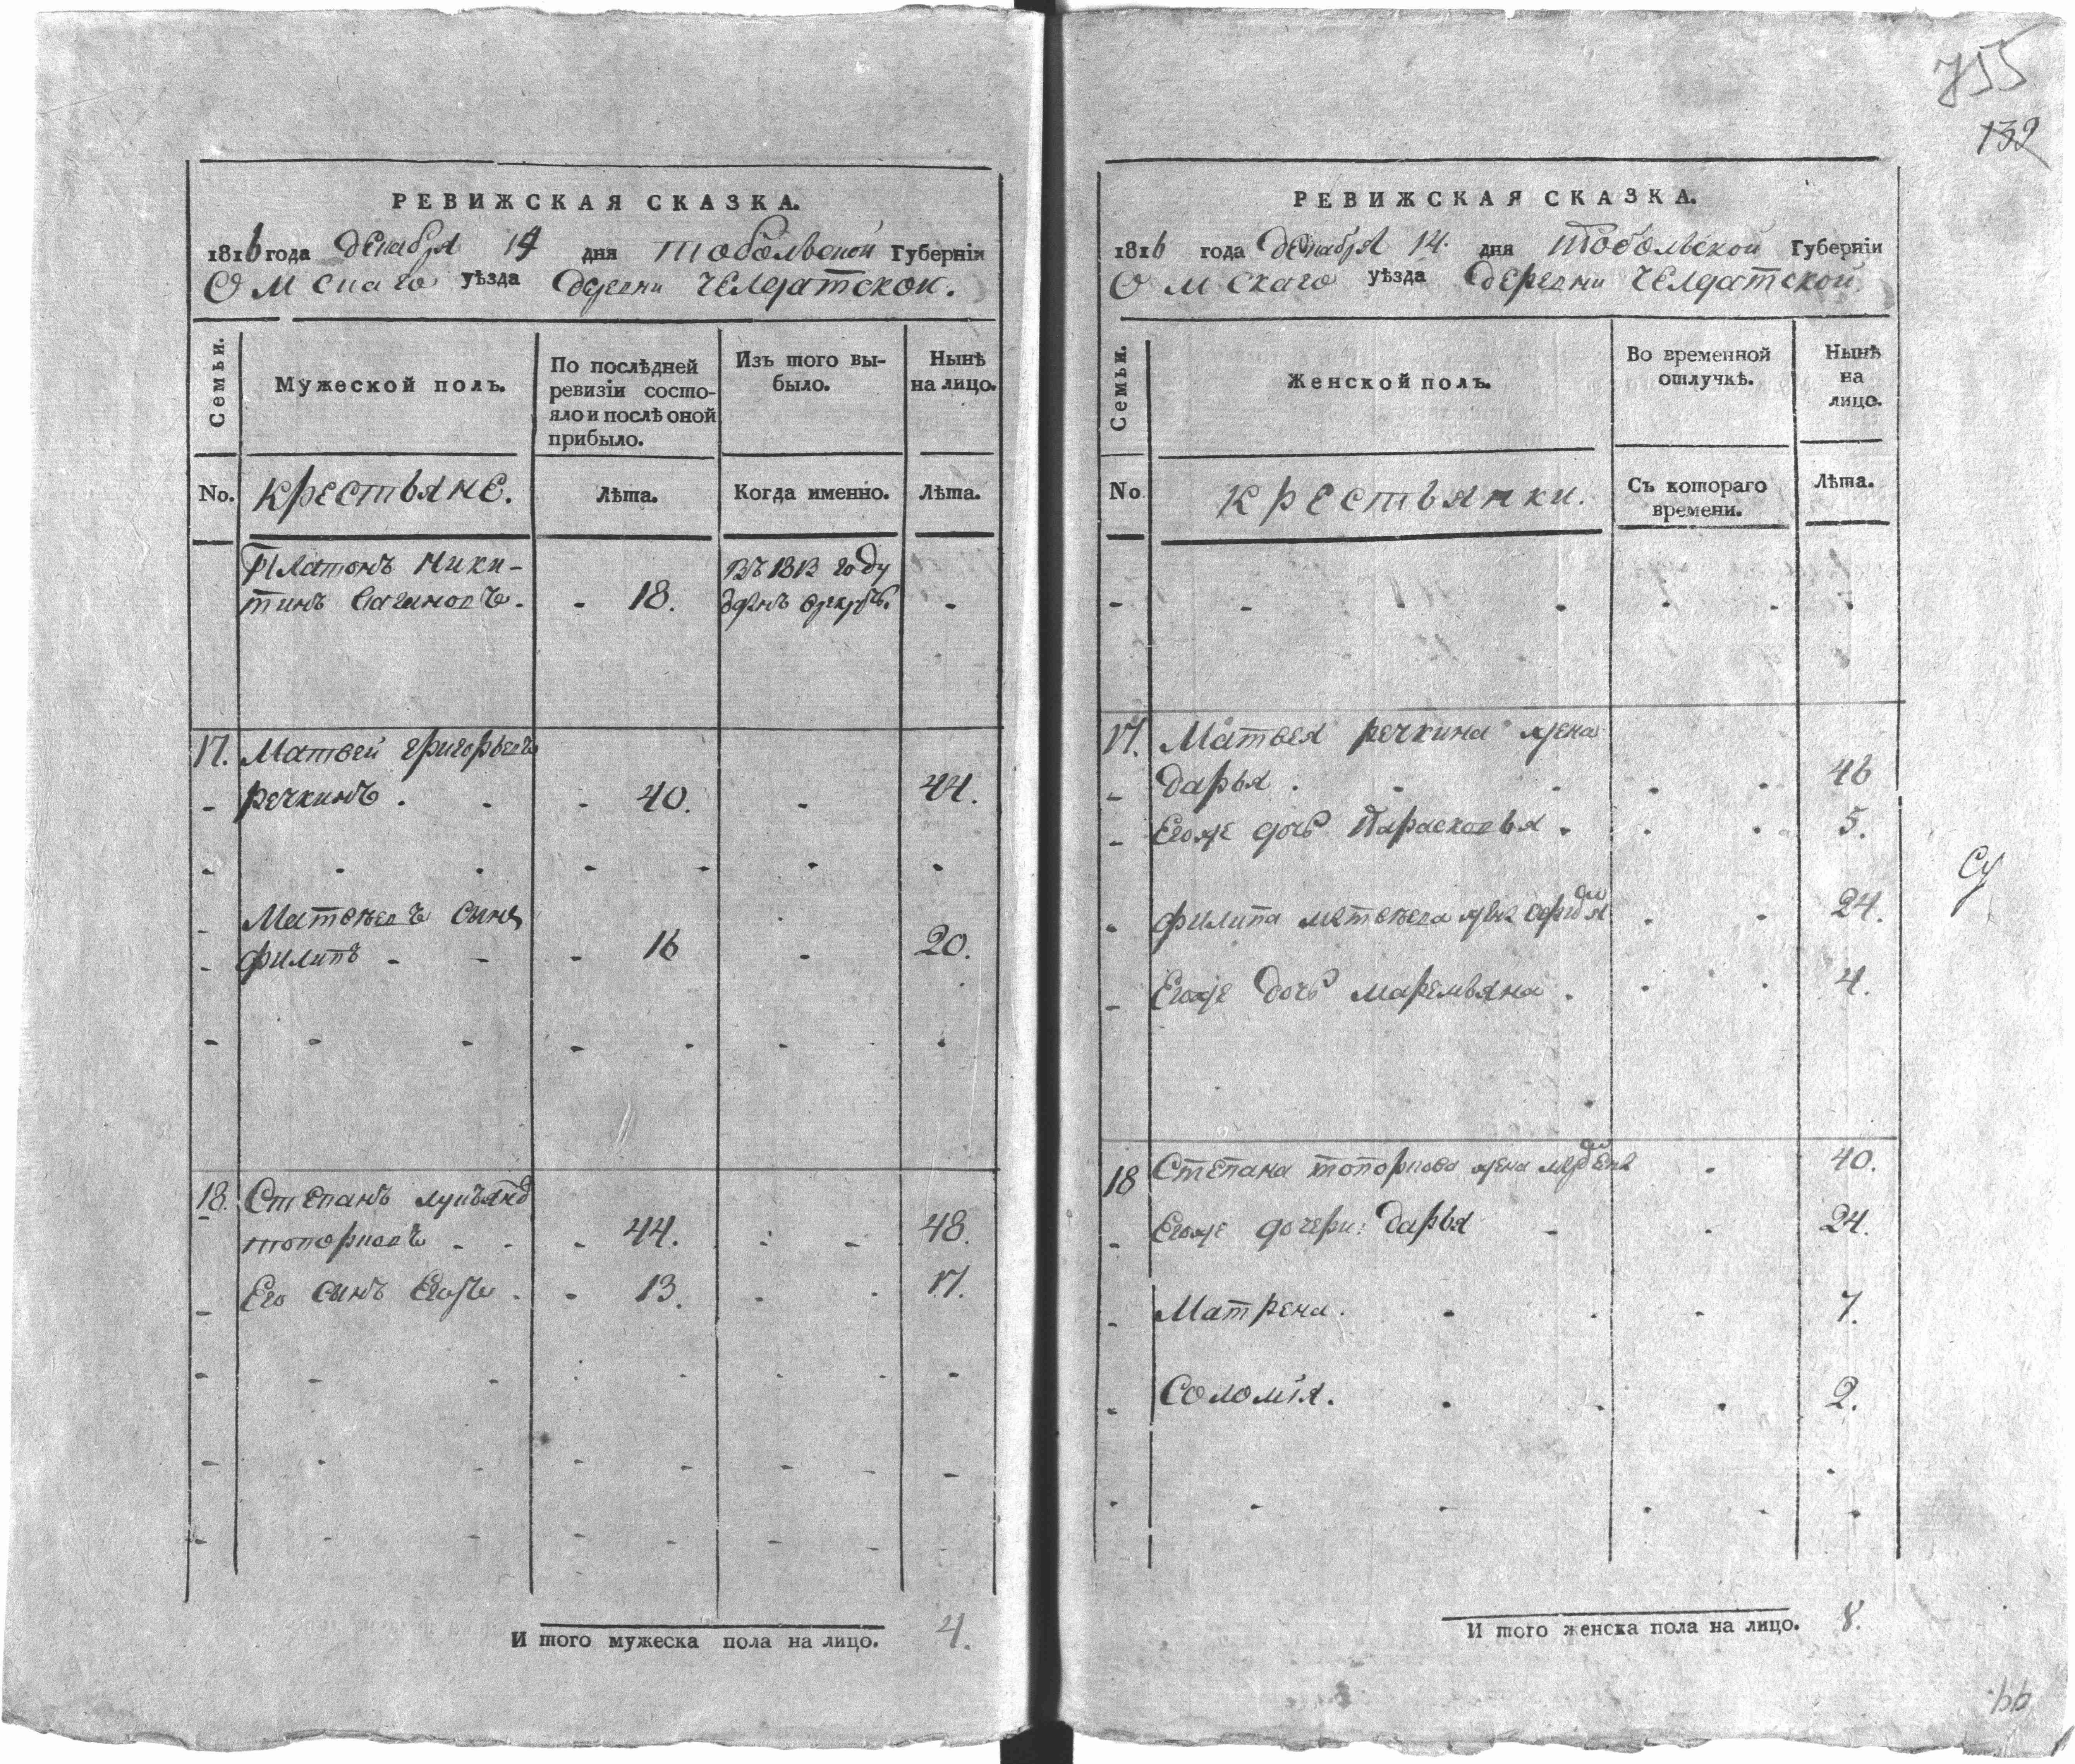 РЕВИЖСКАЯ СКАЗКА.
1816 года декабря 14 дня Тобольской Губерніи
Омскаго уѣзда деревни Челдатской.
Семьи.
Мужеской полъ.
По послѣдней ревизіи состо-
яло и послѣ оной
прибыло.
Изъ того вы-
было.
Нынѣ
на лицо.
No.
крестьяне.
Лѣта.
Когда именно.
Лѣта.
Платонъ Ники-
тинъ - 18. -
Въ 1813 году
17. Матвей григорьевъ
речкинъ . - 40. - 44.
Матвѣевъ сынъ
филипъ - 16 - 20.
18. Степанъ лукьянъ
топорковъ - 44. - 48.
Его сынъ Егоръ . - 13. - 17.
И того мужеска пола на лицо. 4.
755
132
РЕВИЖСКАЯ СКАЗКА.
1816 года декабря 14. дня Тобольской Губерніи
Омскаго уѣзда деревни Челдатской.
Семьи.
Женской полъ.
Во временной
отлучкѣ.
Нынѣ
на
лицо.
No
крестьянки.
Съ котораго
времени.
Лѣта.
17. Матвея речкина жена
дарья . 46
Егоже дочь Парасковья . 5.
филипа матвѣева жена 24.
Егоже дочь маремьяна . 4.
18 Степана топоркова жена 40.
Егоже дочери: дарья 24.
Матрена. 7.
Соломія. 2.
И того женска пола на лицо. 8.